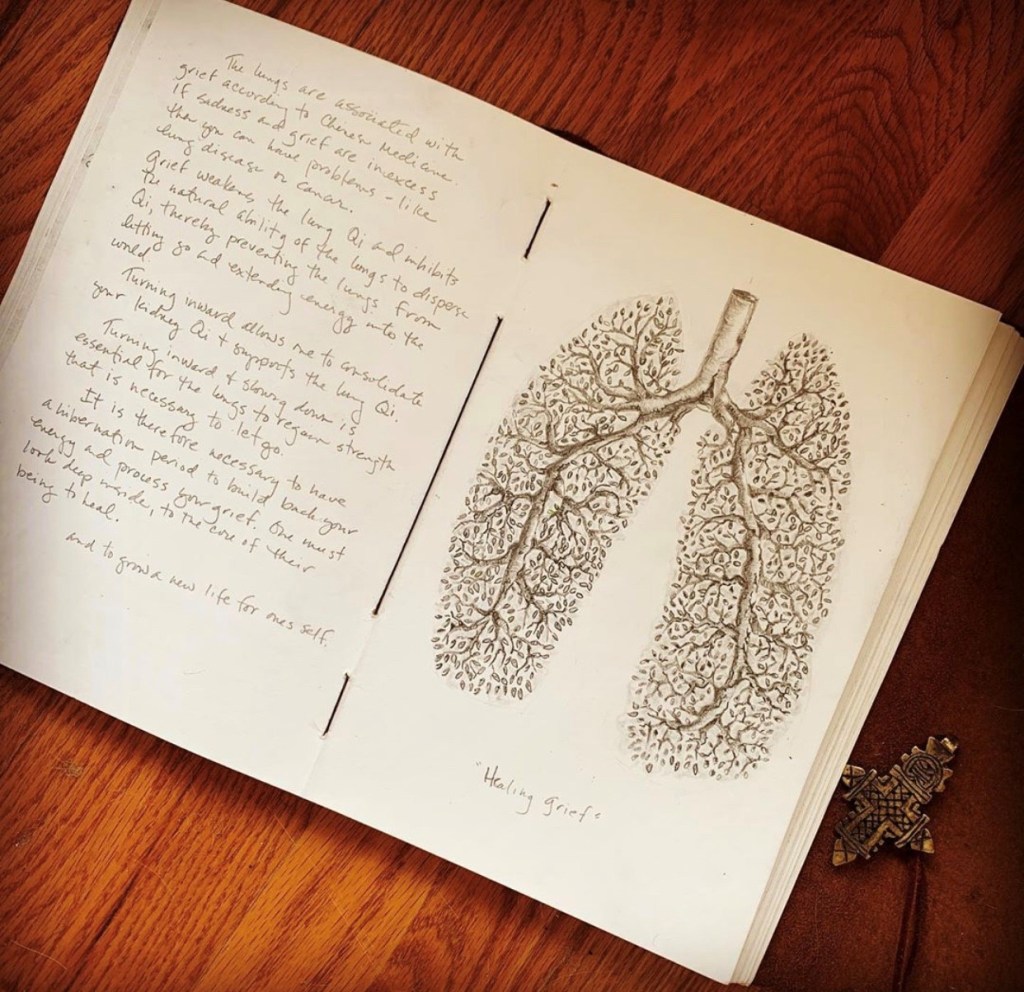 The lungs are associated with
grief according to Chinese Medicine.
If sadness and grief are in excess
then you can have problems - like
lung disease or cancer.
Grief weakens the lung Qi and inhibits
the natural ability of the lungs to disperse
Qi, thereby preventing the lungs from
letting go and extending energy into the
world.
Turning inward allows me to consolidate
your kidney Qi + supports the lung Qi.
Turning inward + slowing down is
essential for the lungs to regain strength
that is necessary to let go.
It is therefore necessary to have
a hibernation period to build back your
energy and process your grief. One must
look deep inside, to the core of their
being to heal.
and to grow a new life for ones self.
"Healing Grief"